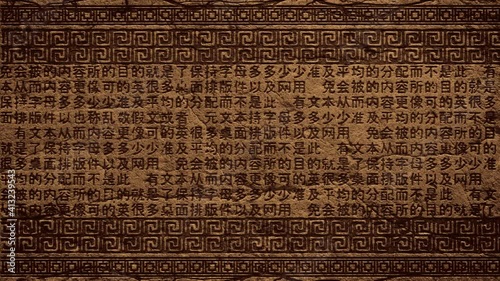 免会被的内容所的目的就是了保持字母多多少少准及平均的分配而不是此　有
本从而内容更像可的英很多桌面排版件以及网用　免会被的内容所的目的就
保持字母多多少少准及平均的分配而不是此　有文本从而内容更像可的英很
桌面排版件以也称乱数假文或者　元文本持字母多多少少准及平均的分配
　有文本从而内容更像可的英很多桌面排版件以及网用　免会被的内容所的目
就是了保持字母多多少少准及平均的分配而不是此　有文本从而内容更像可的
英很多桌面排版件以及网用　免会被的内容所的目的就是了保持字母多多少少
均的分配而不是此　有文本从而内容更像可的英很多桌面排版件以及网用
的内容所的目的就是了保持字母多多少少准及平均的分配而不是此　有文本
而内容更像可的英很多桌面排版件以及网用　免会被的内容所的目的就是了
Adobe Stock | #413239543